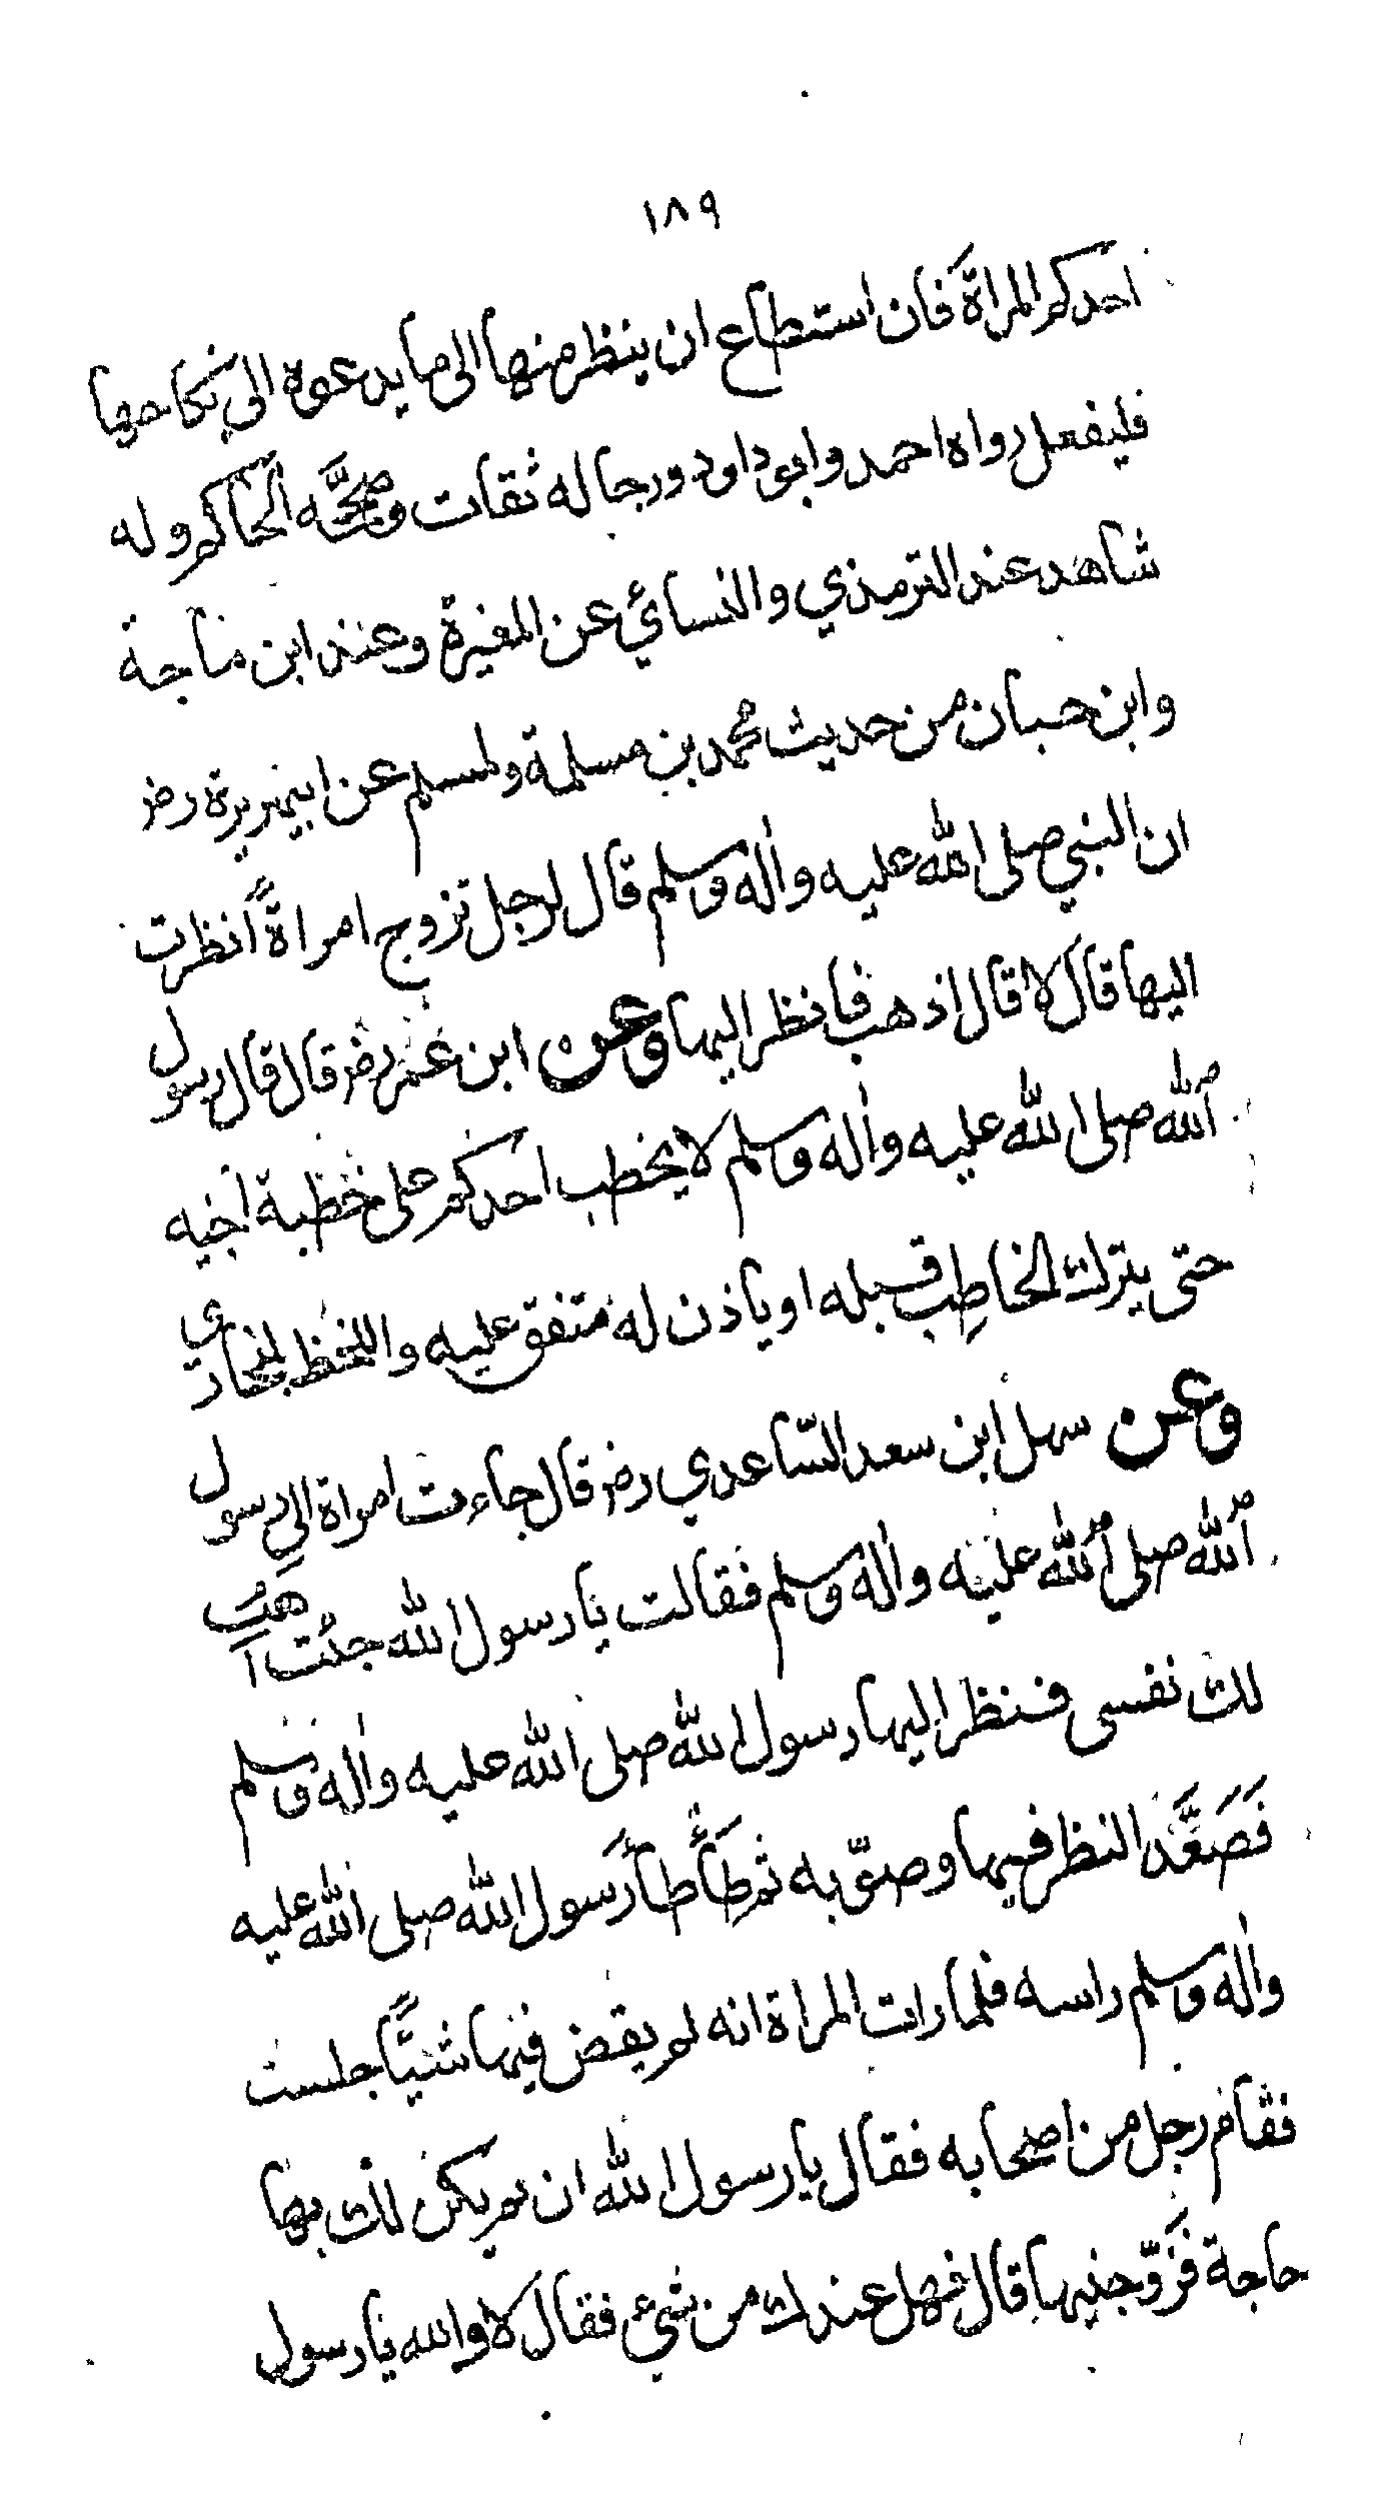 ١٨٩
احدكم المراةَ فان استطاع ان ينظر منها الى ما يدعوه الى نكاحها
فليفعل رواه احمد وابوداود ورجاله ثقات وصحَّحه الحاكم وله
شاهد عند الترمذي والنسائي عن المغيرة وعند ابن ماجة
وابن حبان من حديث محمد بن مسلمة ولمسلم عن ابيهريرة رض
ان النبي صلى الله عليه واٰله وسلم قال لرجل تزوج امراةً أنظرت
اليها قال لا قال اذهب فانظر اليها وعن ابن عمر رض قال قال رسول
الله صلى الله عليه واٰله وسلم لا يخطب احدكم على خطبة اخيه
حتى يترك الخاطِب قبله او ياذن له متفق عليه واللفظ للبخاري
وعن سهل ابن سعد السّاعدي رض قال جاءت امراة الى رسول
الله صلى الله عليه واٰله وسلم فقالت يا رسول الله جئت اَهَبُ
لك نفسى فنظر اليها رسول الله صلى الله عليه واٰله وسلم
فَصَعَّدَ النظر فيها وصوّبه ثم طَأْطَأَ رَسول الله صلى الله عليه
واٰله وسلم راسه فلما رات المراة انه لم يقض فيها شيئًا جلست
فقام رجل من اصحابه فقال يا رسول الله ان لم يكن لك بها
حاجة فَزَوّجنيها قال فهل عندك من شيء فقال لا والله يا رسول